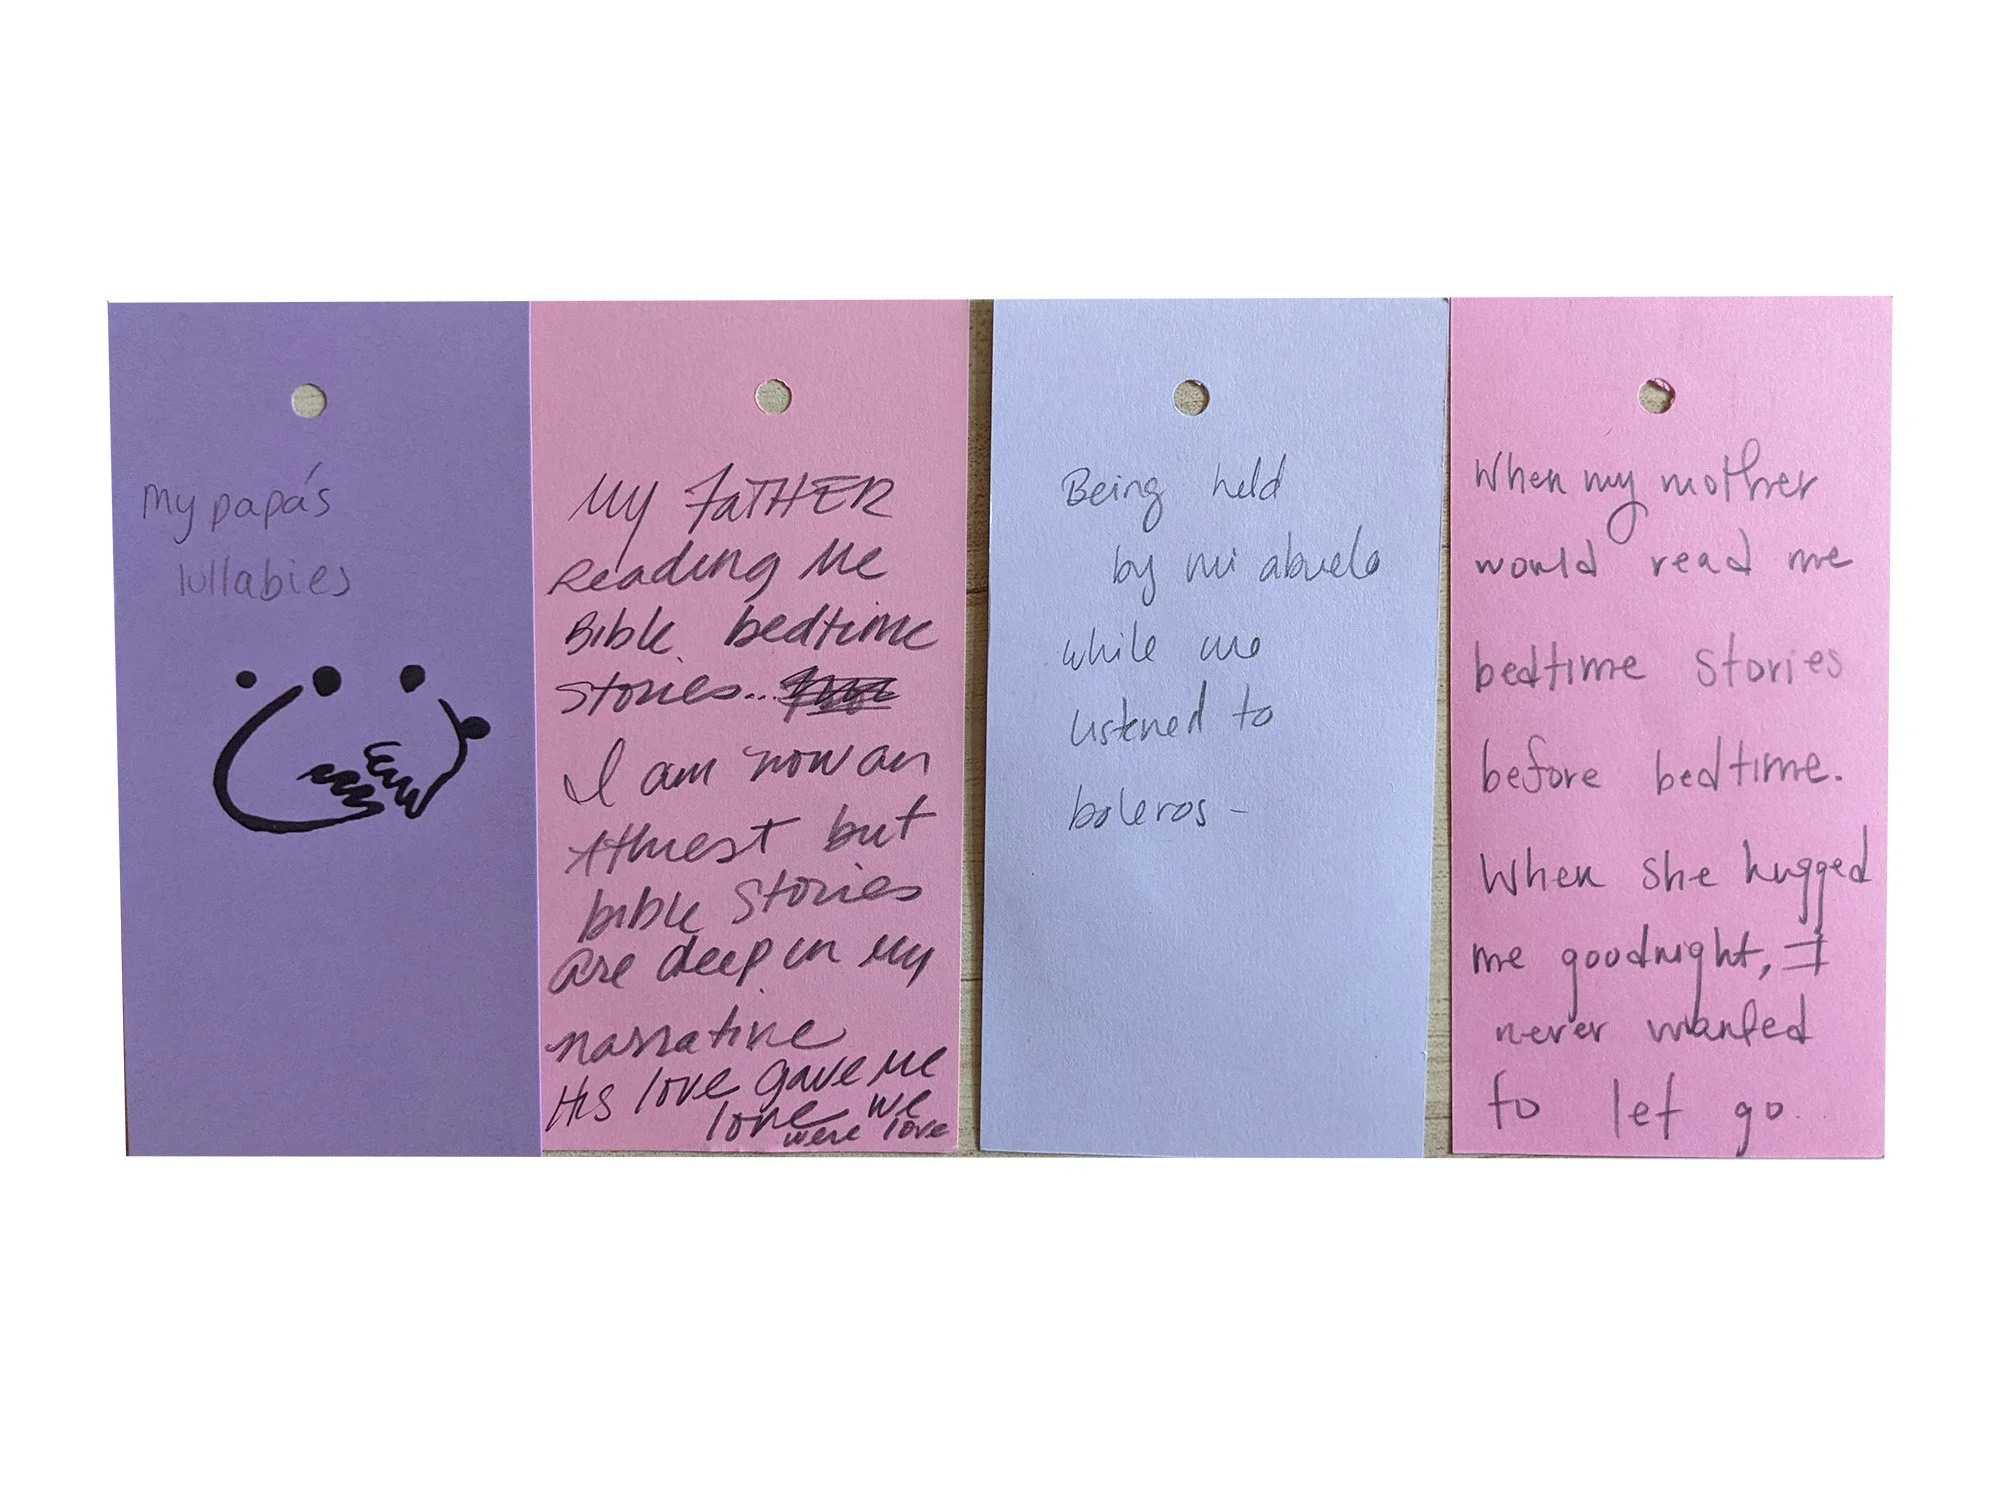 my papá's
lullabies
My FaTHER
Reading Me
Bible bedtime
stories...
I am now an
Athiest but
bible stories
are deep in my
narrative
His love gave me
love we
were love
Being held
by mi abuelo
while we
listened to
boleros –
When my mother
would read me
bedtime stories
before bedtime.
When she hugged
me goodnight, I
never wanted
to let go.